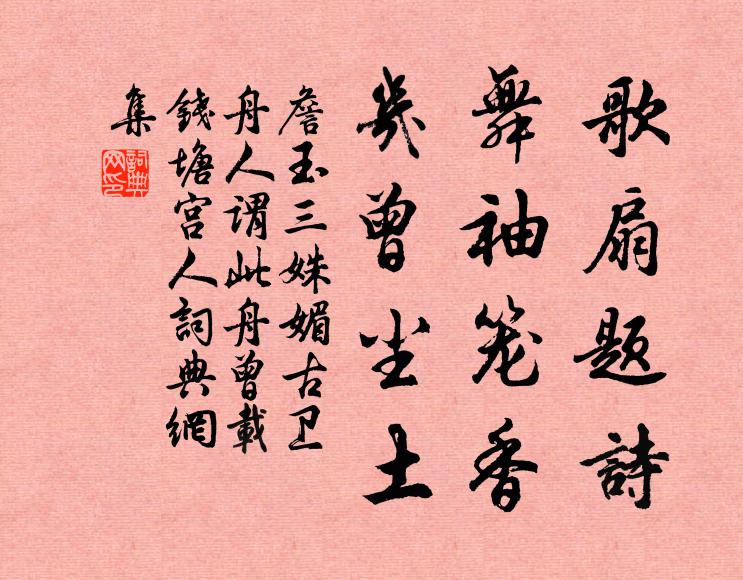 歌扇题詩
舞袖笼香
幾曾尘土
詹玉三姝媚古卫
舟人谓此舟曾載
錢塘宫人詞典網
集
詞典網印